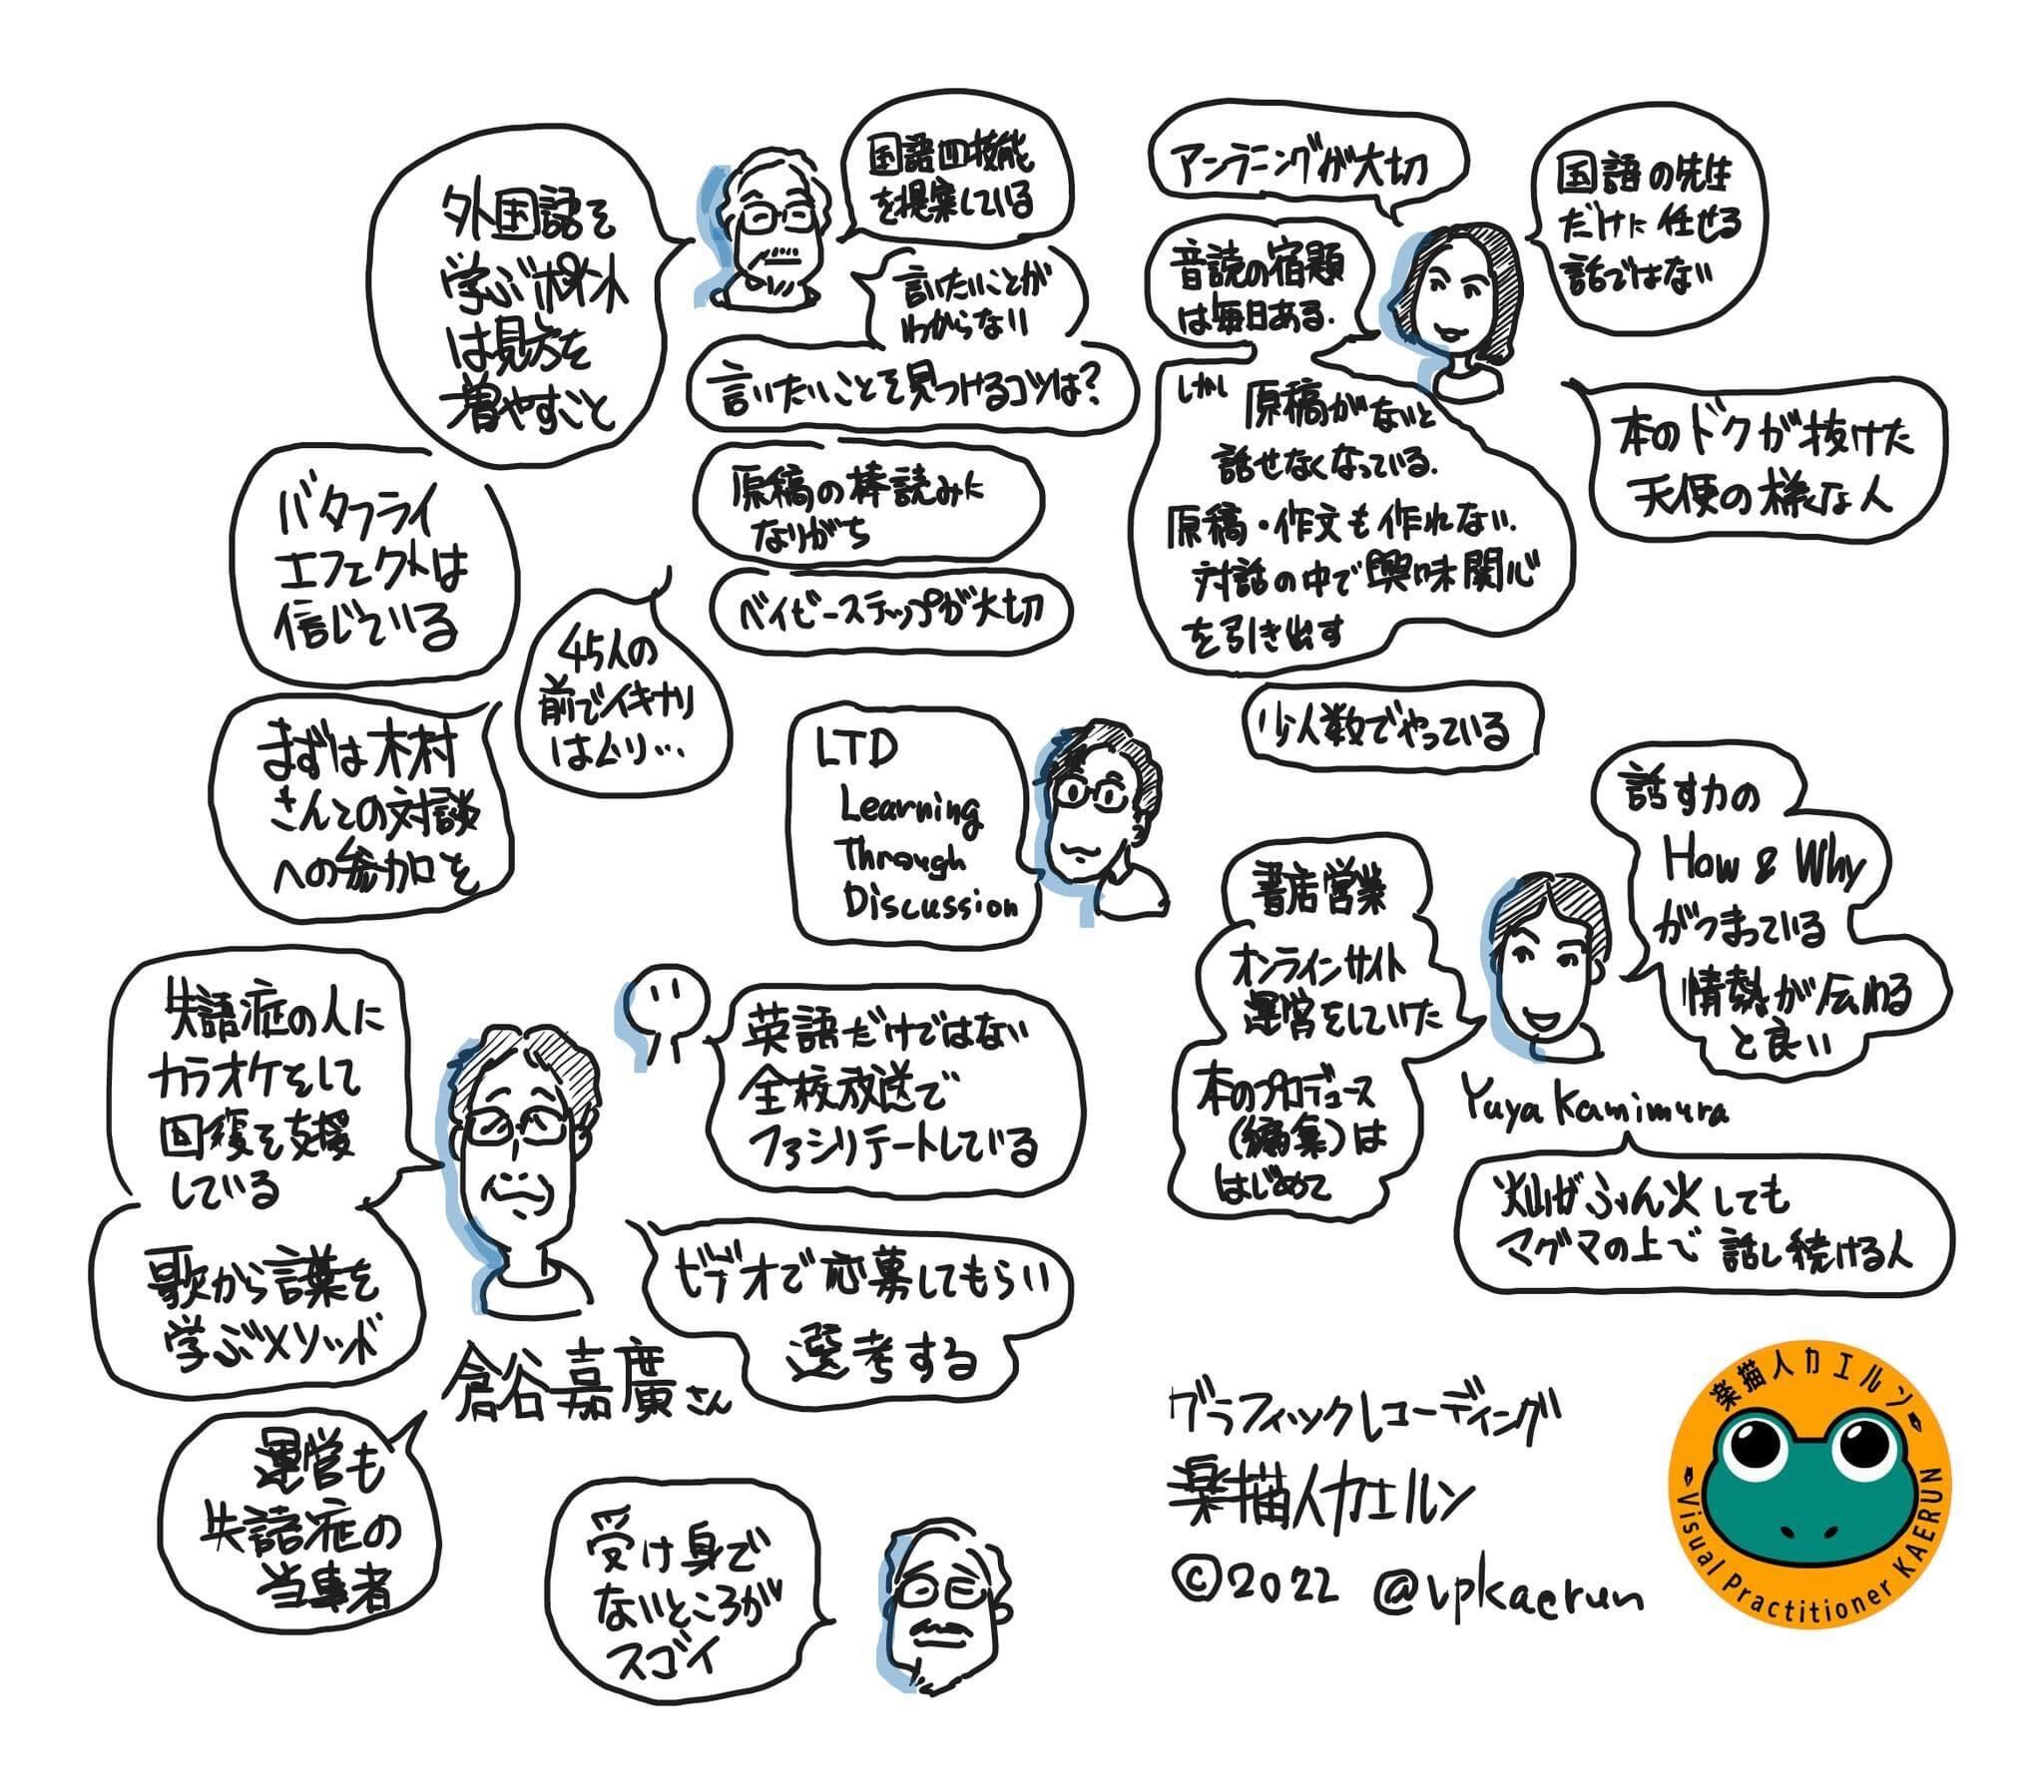 外国語を
学ぶポイント
は見方を
増やすこと
国語四技能
を提案している
言いたいことが
わからない
言いたいことを見つけるコツは?
原稿の棒読みに
なりがち
ベイビーステップが大切
バタフライ
エフェクトは
信じている
45人の
前でイキナリ
はムリ…
まずは木村
さんとの対談
への参加を
アンラニングが大切
国語の先生
だけに任せる
話ではない
音読の宿題
は毎日ある.
しかし 原稿がないと
話せなくなっている.
原稿・作文も作れない.
対話の中で興味関心
を引き出す
本のドクが抜けた
天使の様な人
少人数でやっている
LTD
Learning
Through
Discussion
話す力の
How & Why
がつまっている
情熱が伝わる
と良い
書店営業
オンラインサイト
運営をしていた
本のプロデュース
(編集)は
はじめて
Yuya Kamimura
火山がふん火しても
マグマの上で話し続ける人
失語症の人に
カラオケをして
回復を支援
している
歌から言葉を
学ぶメソッド
倉谷嘉廣さん
運営も
失語症の
当事者
英語だけではない
全校放送で
ファシリテートしている
ビデオで応募してもらい
選考する
受け身で
ないところが
スゴイ
グラフィックレコーディング
楽描人カエルン
©2022 @vpkaerun
楽描人カエルン
Visual Practitioner KAERUN